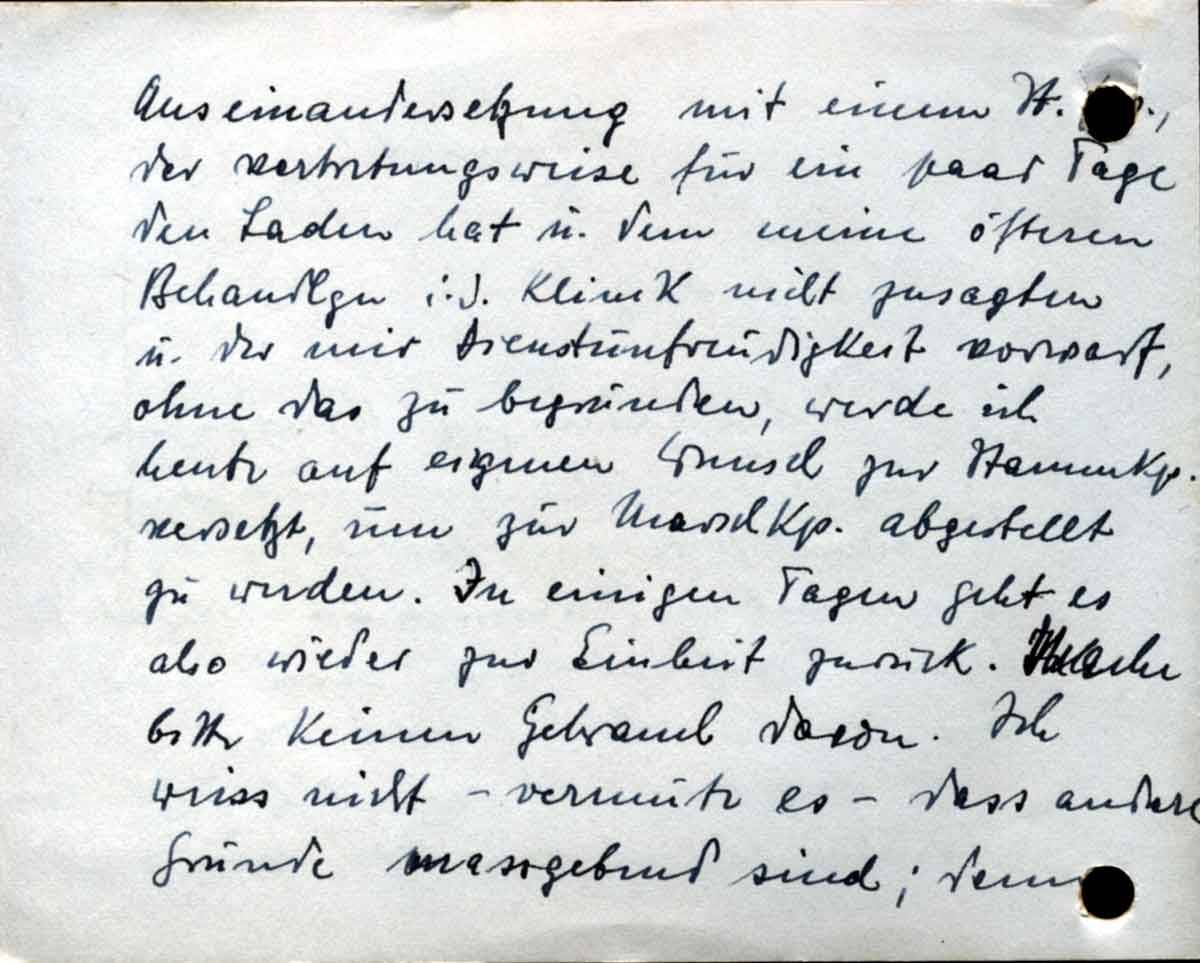 Auseinandersetzung mit einem St.
der vertretungsweise für ein paar Tage
den Laden hat u. dem meine öfteren
Behandlgn i. d. Klinik nicht zusagten
u. der mir Dienstunfreudigkeit vorwarf,
ohne das zu begründen, werde ich
heute auf eigenen Wunsch zur StammKp.
versetzt, um zur MarschKp. abgestellt
zu werden. In einigen Tagen geht es
also wieder zur Einheit zurück. Mache
bitte keinen Gebrauch davon. Ich
weiss nicht - vermute es - dass andere
Gründe massgebend sind; denn